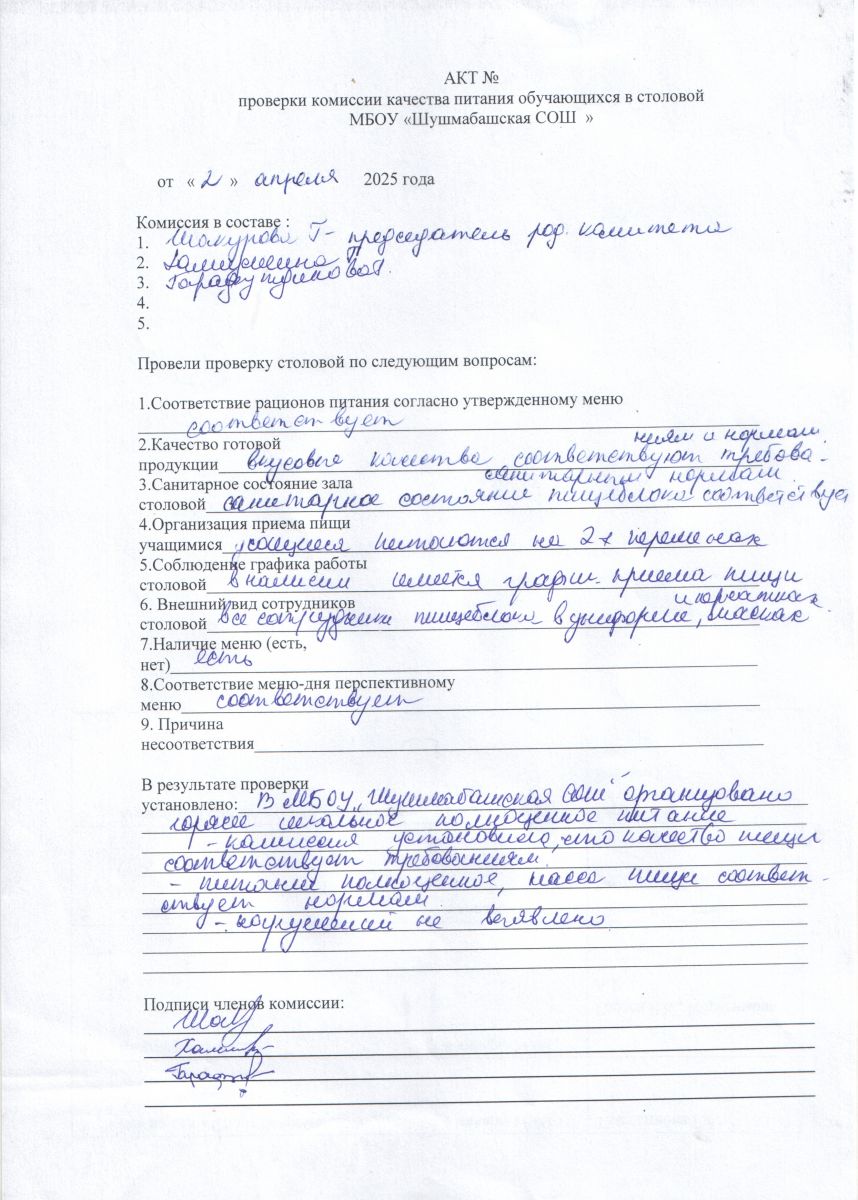 АКТ №
проверки комиссии качества питания обучающихся в столовой
МБОУ «Шушмабашская СОШ »
от « 2 » апреля 2025 года
Комиссия в составе :
1. Шакурова Г- председатель род. камитета
2.
3. Гарафутдинова Г.
4.
5.
Провели проверку столовой по следующим вопросам:
1.Соответствие рационов питания согласно утвержденному меню
соответствует
2.Качество готовой
ниям и нормам.
продукции вкусовые качества соответствуют требова-
3.Санитарное состояние зала
санитарным нормам.
столовой санитарное состояние пищеблока соответствует
4.Организация приема пищи
учащимися учащиеся питаются на 2х переменах
5.Соблюдение графика работы
столовой в наличии имеется график приема пищи
6. Внешний вид сотрудников
и перчатках.
столовой все сотрудники пищеблока в униформе, масках
7.Наличие меню (есть,
нет) есть
8.Соответствие меню-дня перспективному
меню соответствует
9. Причина
несоответствия
В результате проверки
установлено: В МБОУ „Шушмабашская СОШ“ организовано
горячее школьное полноценное питание
- камиссия установила, что качество пищи
соответствует требованиям.
- питание полноценное, масса пищи соответ-
ствует нормам.
- нарушений не выявлено.
Подписи членов комиссии: